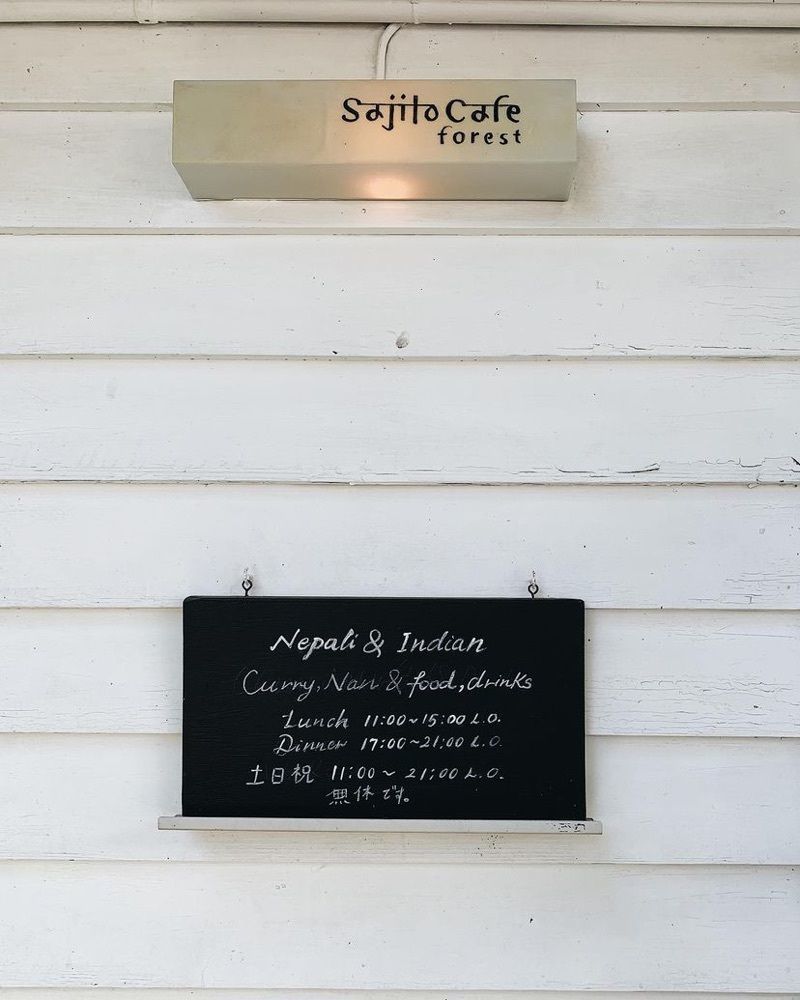 Sajilo Cafe
forest
Nepali & Indian
Curry, Nan & food, drinks
Lunch 11:00~15:00 L.O.
Dinner 17:00~21:00 L.O.
土日祝 11:00 ~ 21:00 L.O.
無休です。